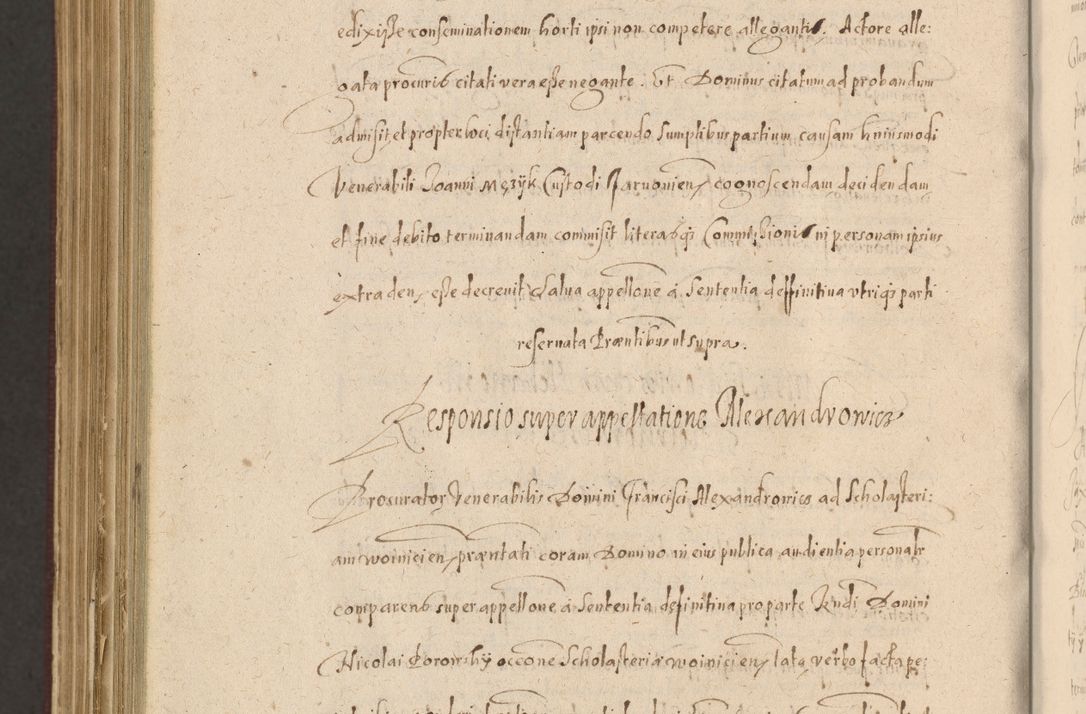 edixisse conseminationem horti ipsi non competere allegantis. Actore alle:
gata procuris citati vera esse negante. Et Dominus citatum ad probandum
admisit, et propter loci distantiam parcendo sumptibus partium, causam huiusmodi
Venerabili Joanni Męzyk Custodi cognoscendam, decidendam
et fine debito terminandam commisit literasqz Commissionis in personam ipsius
extraden, esse decrevit, Salva appellone à Sententia deffinitiva utriqz parti
reservata Præntibus ut supra.
Responsio super appellatione Alexandrowicz
Procurator Venerabilis Domini Francisci Alexandrowicz ad Scholasteri:
am woinicien, præntati coram Domino in eius publica audientia personalr
comparens super appellone à Sententia definitiva pro parte Rndi Domini
Nicolai Borowsky occone Scholasteriæ woinicien, lata, verbo facta pe: